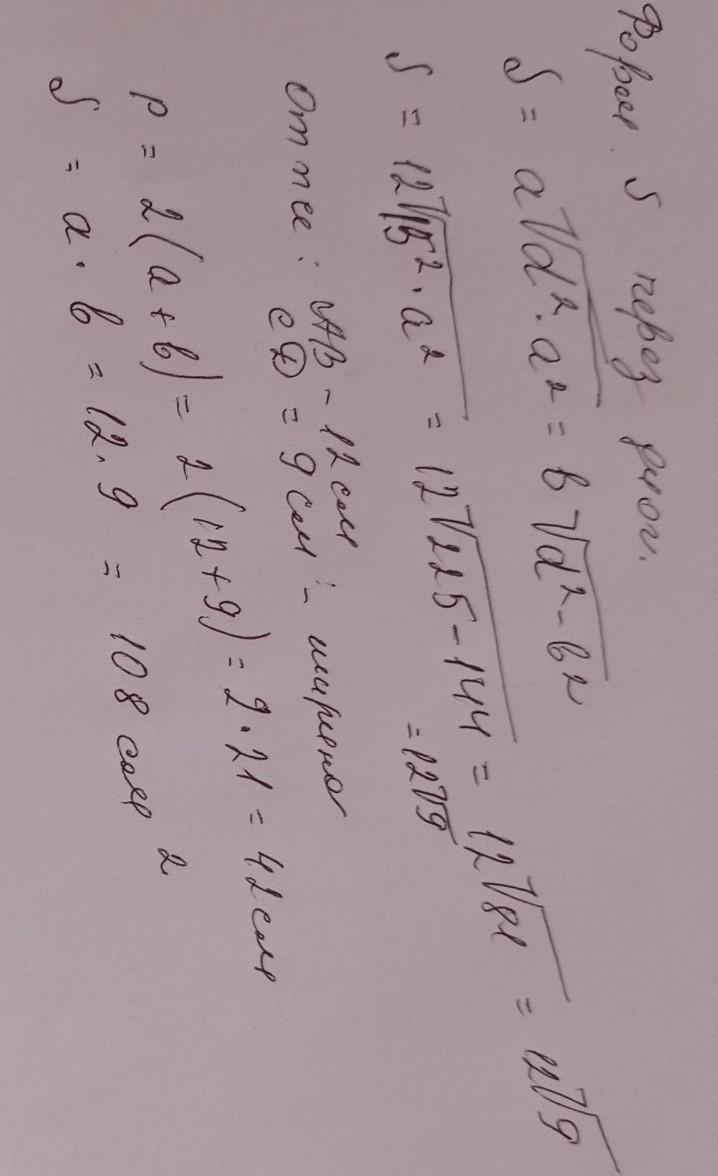 Форм. S через диог.
S = a√d²·a² = b√d²-b²
S = 12√15²·a² = 12√225-144 = 12√81 = 12√9
= 12√9
От псе: AB - 12 см
СД = 9 см :- ширена
P = 2(a+b) = 2(12+9) = 2·21 = 42 см
S = a·b = 12·9 = 108 см 2